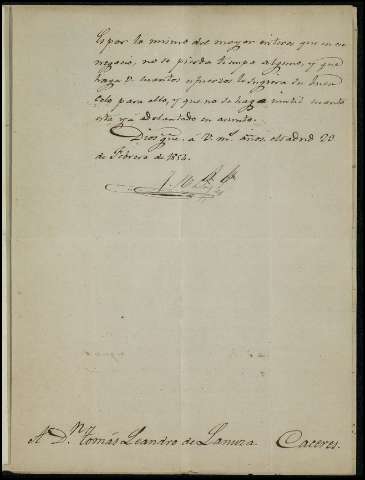 Es por lo mismo del mayor interes que en ese
negocio, no se pierda tiempo alguno, y que
haga V. cuantos esfuerzos le sugiera su buen
celo para ello, y que no se haga inutil cuanto
está ya adelantado en asunto.
Dios gue. á V. ms. años. Madrid 23
de Febrero de 1852.
A Dn. Tomás Leandro de Lanuza. Caceres.